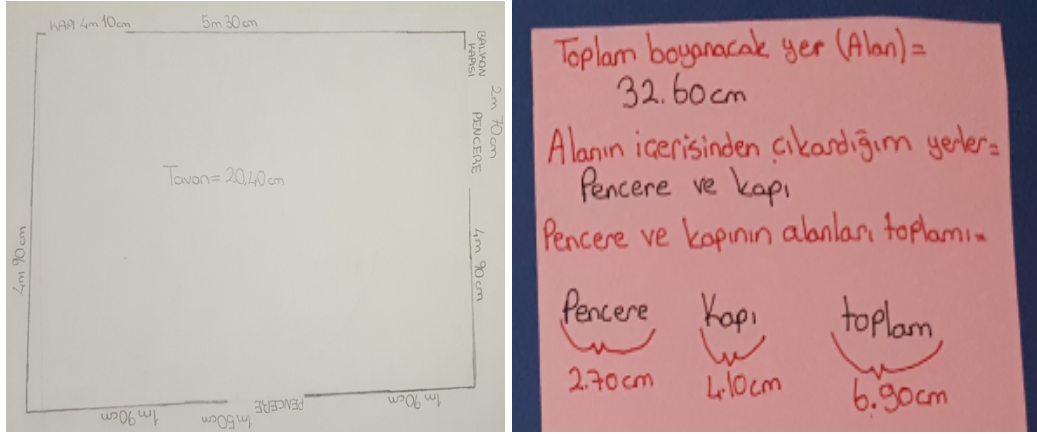 KAPI 4m 10cm
5m 30cm
BALKON
KAPISI
2m 70cm
PENCERE
4m 90cm
Tavan= 20,40cm
7m 90cm
1m 90cm
1m 50cm
PENCERE
1m 90cm
Toplam boyanacak yer (Alan)=
32.60cm
Alanın içerisinden çıkardığım yerler=
Pencere ve kapı
Pencere ve kapının alanları toplamı=
Pencere Kapı toplam
2.70cm 4.10cm 6.90cm